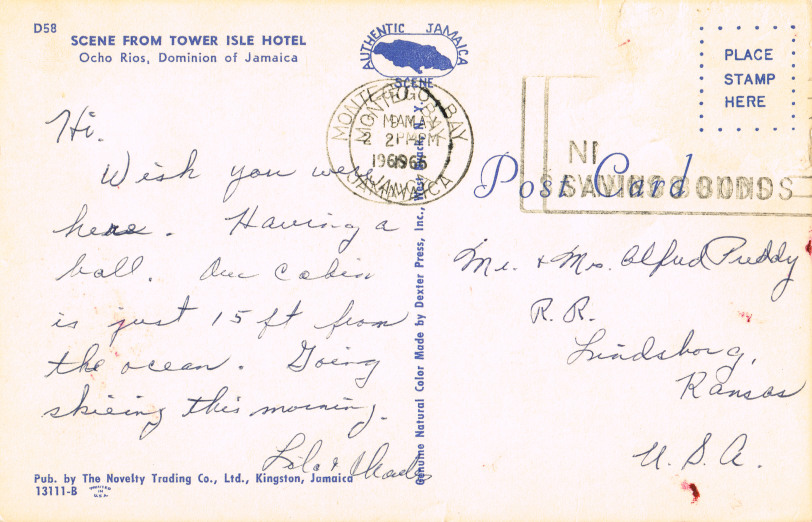 D58
SCENE FROM TOWER ISLE HOTEL
Ocho Rios, Dominion of Jamaica
AUTHENTIC JAMAICA
SCENE
PLACE
STAMP
HERE
MONTEGO BAY
JAMAICA
SAVINGS BONDS
Post Card
Hi.
Wish you were
here. Having a
ball. Our cabin
is just 15 ft from
the ocean. Going
skiing this morning.
Lila &
Mr. & Mrs. Alfred Preddy
R. R.
Lindsborg,
Kansas
U. S. A.
Genuine Natural Color Made by Dexter Press, Inc., West Nyack, N. Y.
Pub. by The Novelty Trading Co., Ltd., Kingston, Jamaica
13111-B
PRINTED
IN
U.S.A.